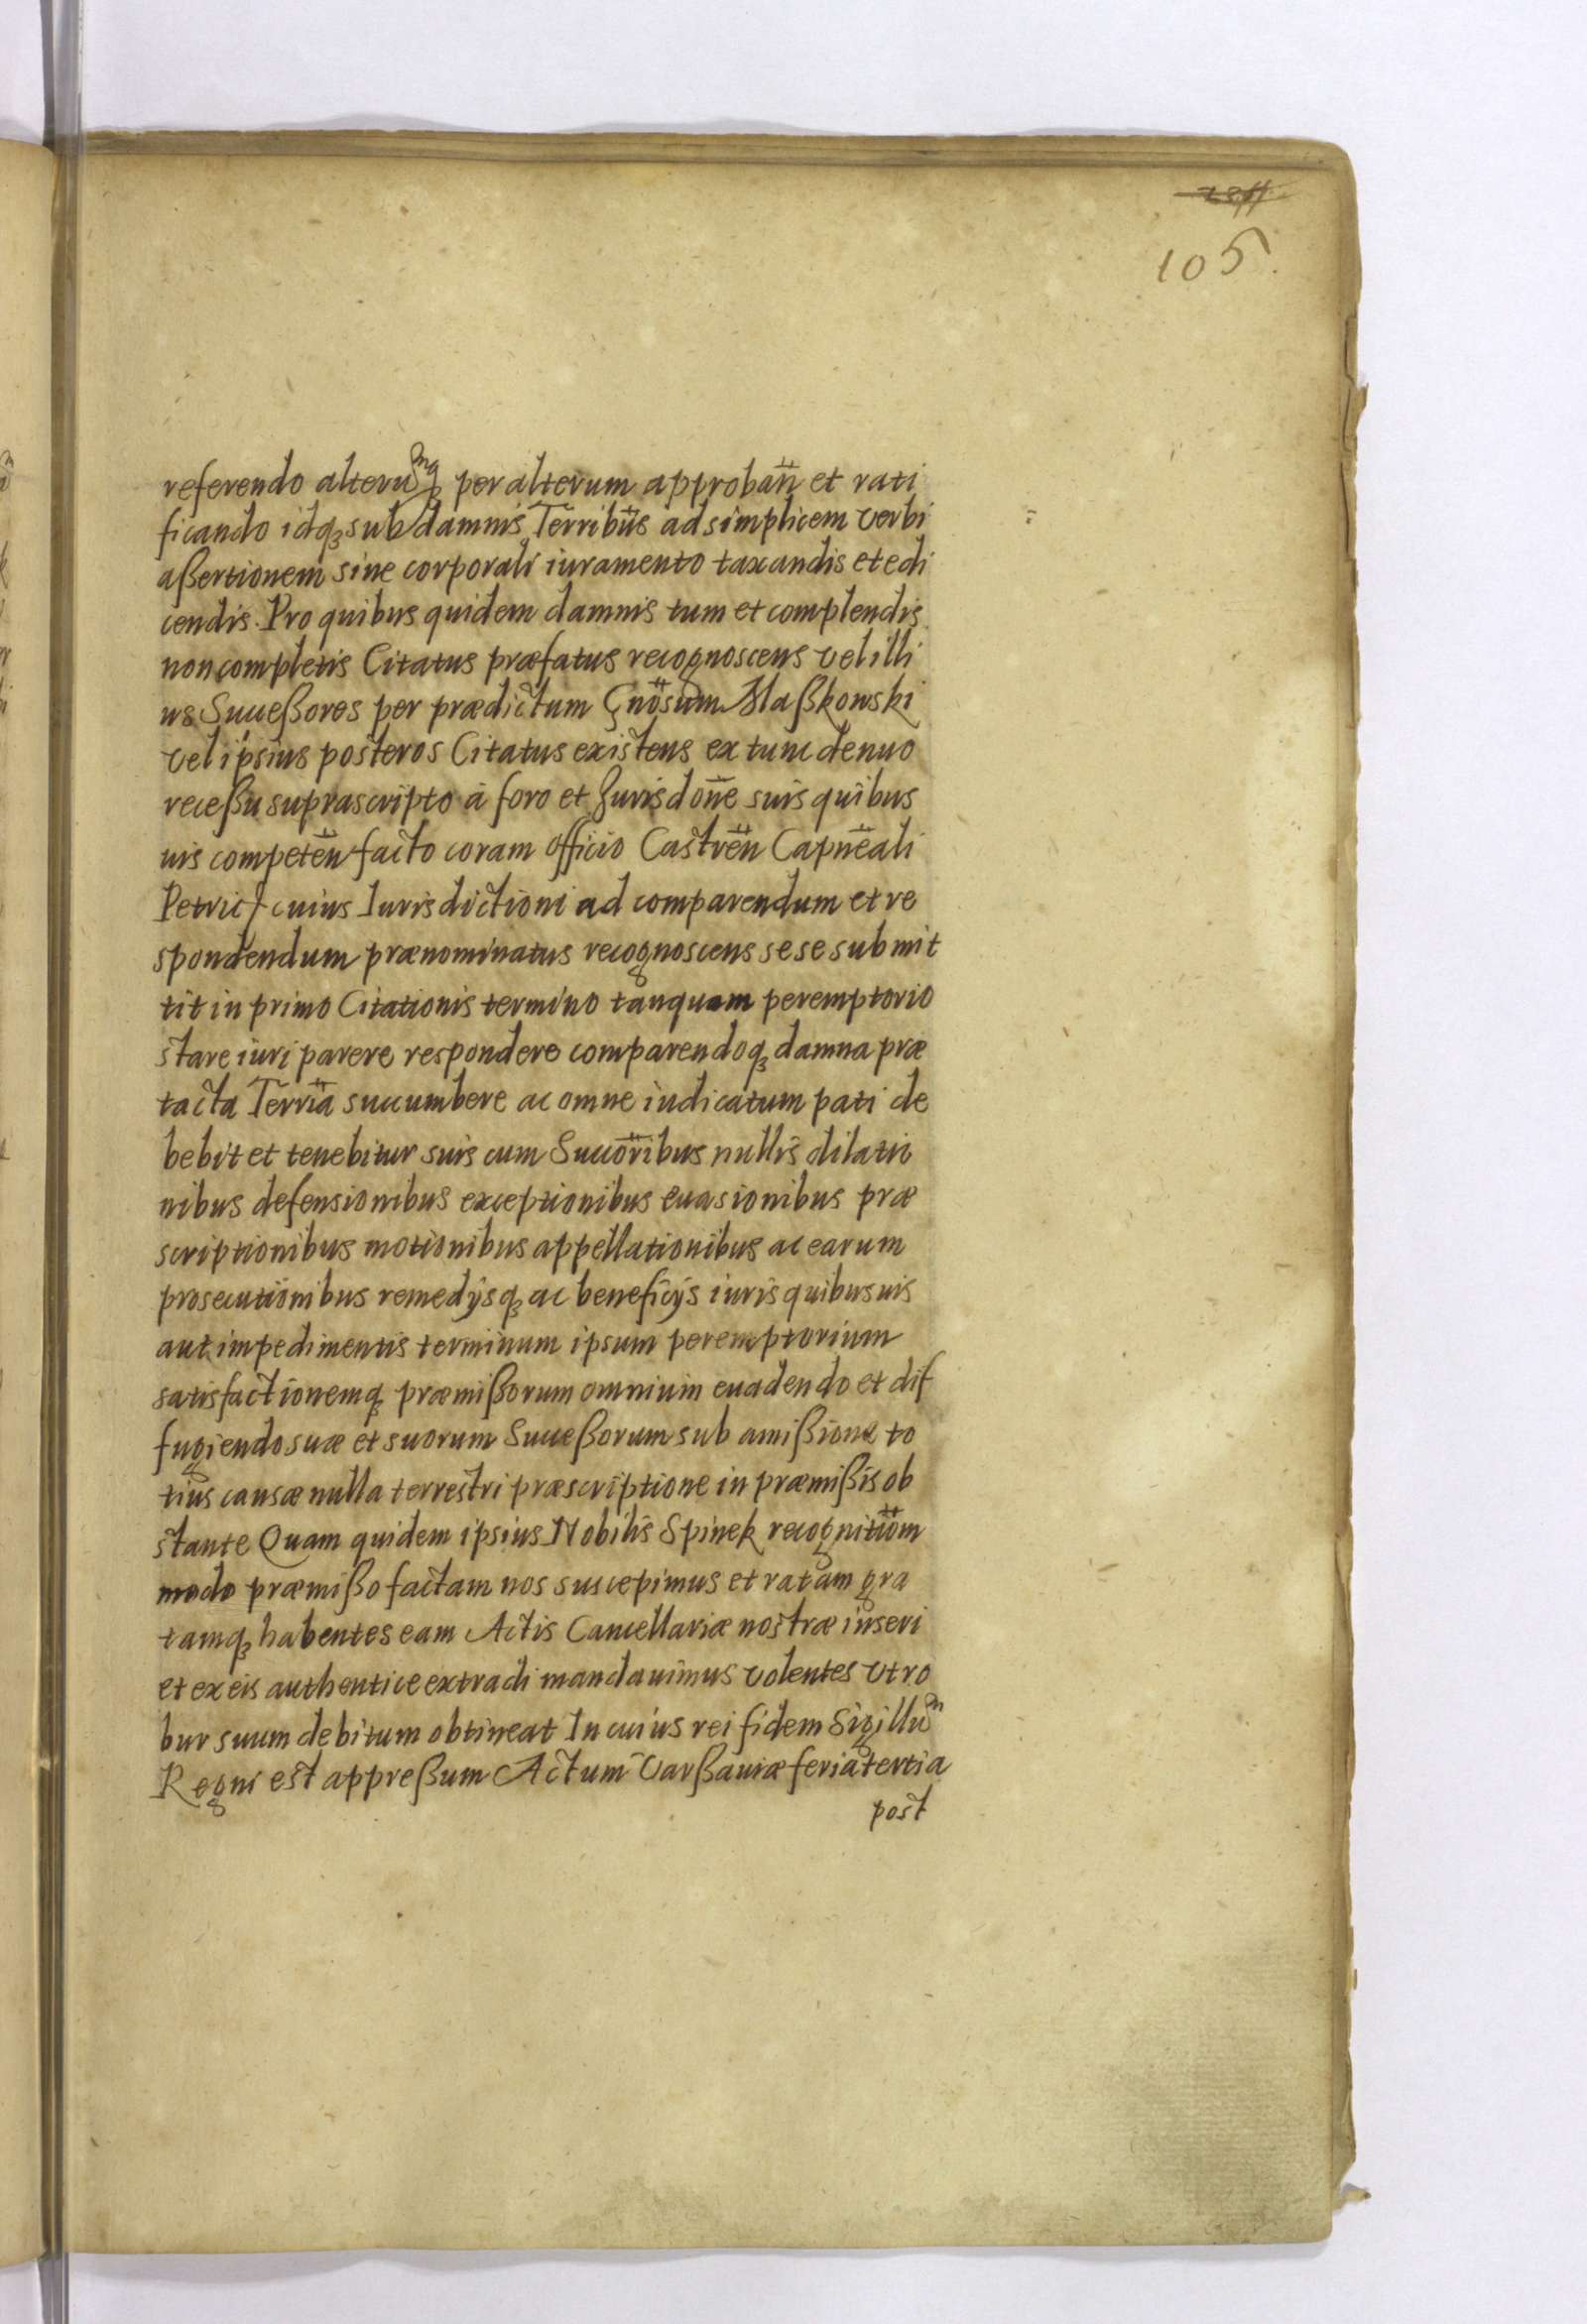 105.
referendo alterumq per alterum approbañ et rati
ficando idq sub damnis Terribus ad simplicem verbi
aßertionem sine corporali iuramento taxandis et edi
cendis. Pro quibus quidem damnis tum et complendis
non completis Citatus præfatus recognoscens vel illi
us Succeßores per prædictum Gnosum Maßkowski
vel ipsius posteros Citatus existens ex tunc denuo
receßu suprascripto à foro et Jurisdone suis quibus
uis competen facto coram officio Castren Capneali
Petric cuius Iurisdictioni ad comparendum et re
spondendum prænominatus recognoscens sese submit
tit in primo Citationis termino tanquam peremptorio
stare iuri parere respondere comparendoq damna præ
tacta Terria succumbere ac omne iudicatum pati de
bebit et tenebitur suis cum Succoribus nullis dilatio
nibus defensionibus exceptionibus euasionibus præ
scriptionibus motionibus appellationibus ac earum
prosecutionibus remedijsq ac beneficijs iuris quibusuis
aut impedimentis terminum ipsum peremptorium
satisfactionemq præmißorum omnium euadendo et dif
fugiendo suæ et suorum Succeßorum sub amißione to
tius causæ nulla terrestri præscriptione in præmißis ob
stante Quam quidem ipsius Nobilis Spinek recognitiom
modo præmißo factam nos suscepimus et ratam gra
tamq habentes eam Actis Cancellariæ nostræ inseri
et ex eis authentice extradi mandauimus volentes vt ro
bur suum debitum obtineat In cuius rei fidem Sigillum
Regni est appreßum Actum Varßauiæ feria tertia
post